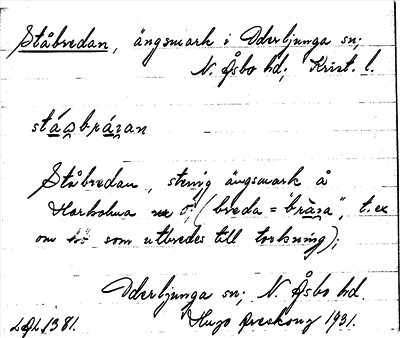 Ståbredan, ängsmark i Oderljunga sn;
N. Åsbo hd; Krist. l.
ståabräzan
Ståbredan, stenig ängsmark å
Harholma no 5; (breda = "bräza", t.ex
om hö som utbredes till torkning);
Oderljunga sn; N. Åsbo hd.
LAL 1381. Hugo Areskoug 1931.